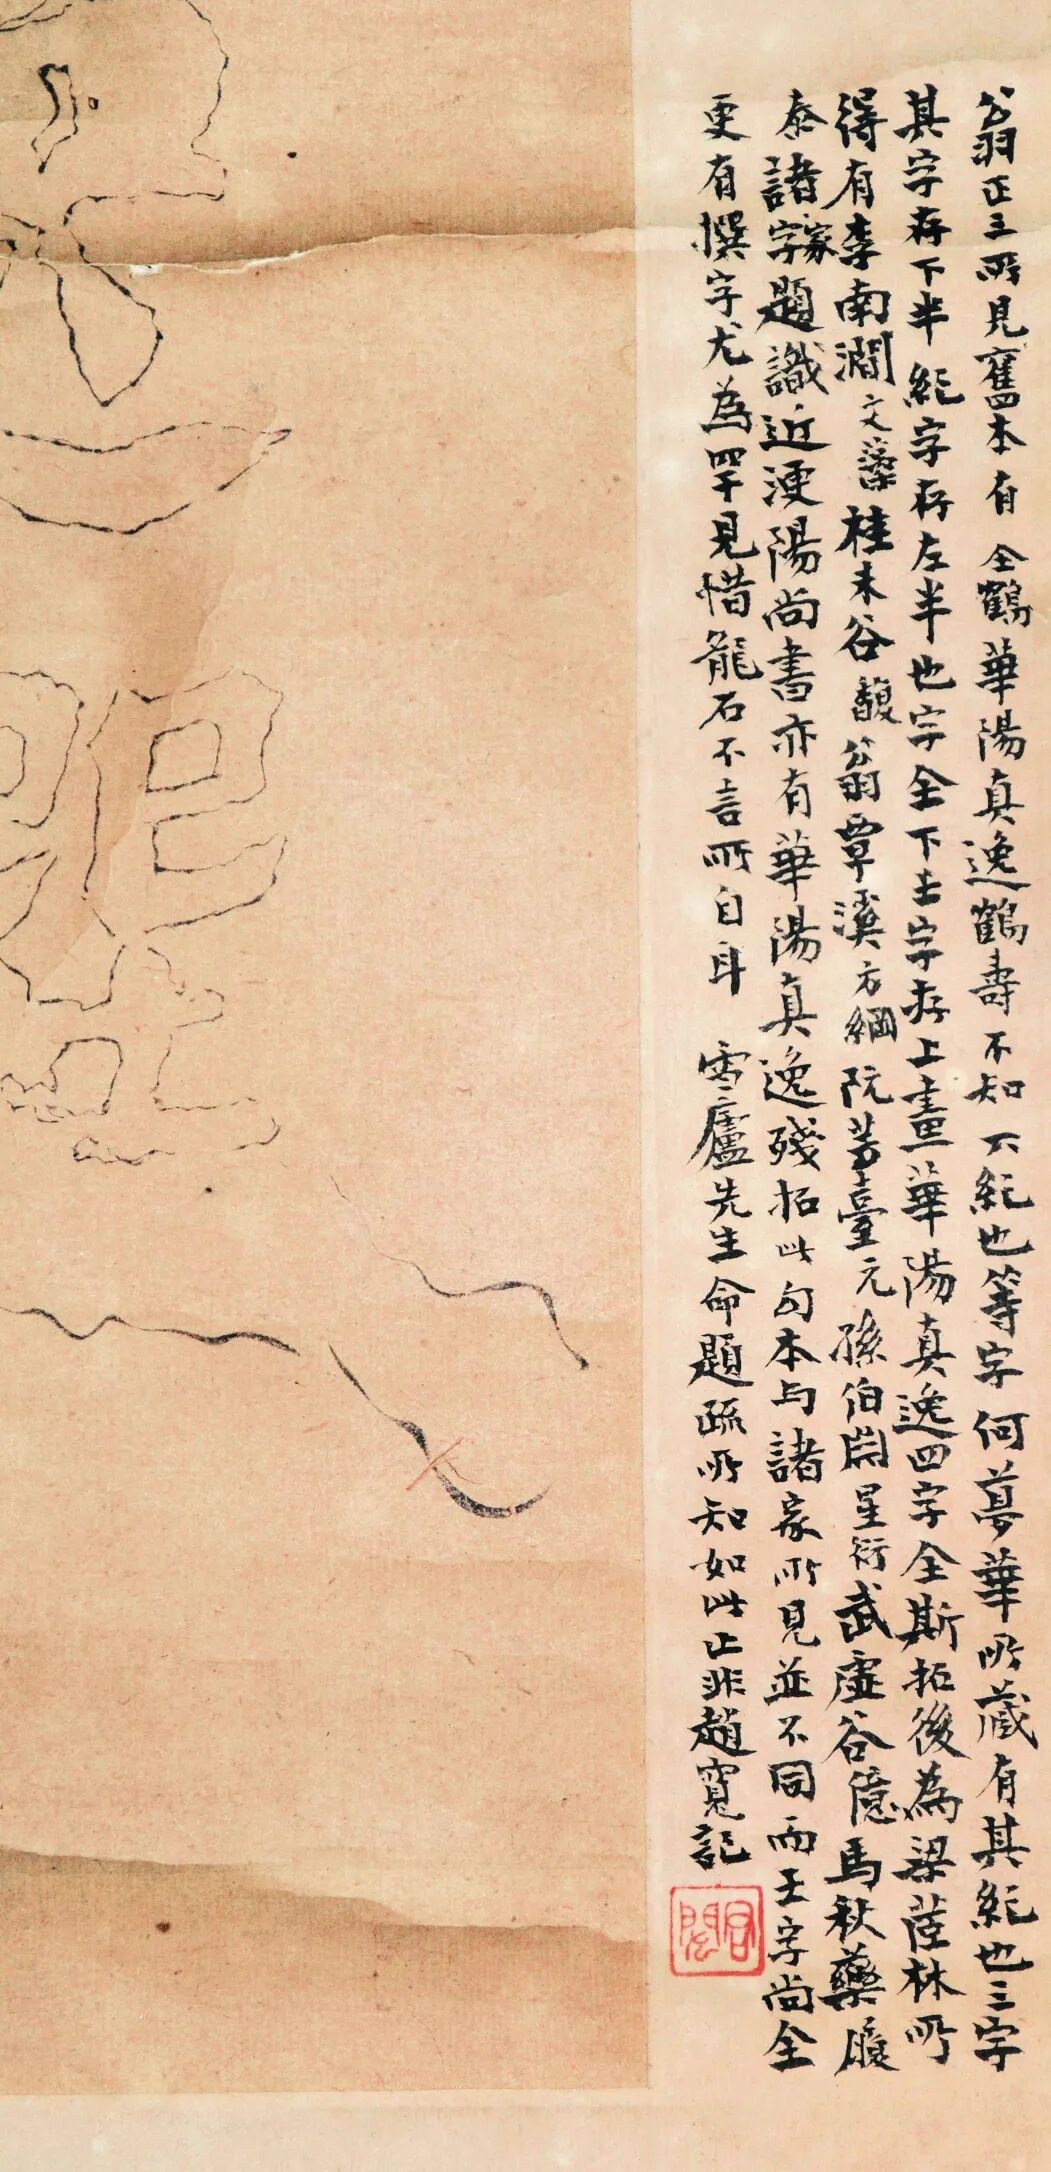 翁正三所見舊本有仝鶴華陽真逸鶴壽不知不紀也等字何夢華所藏有其紀也三字
其字存下半紀字存左半也字全下土字存上畫華陽真逸四字全斯拓後為梁茝林所
得有李南澗文藻桂未谷馥翁覃溪方綱阮芸臺元孫伯淵星衍武虛谷億馬秋藥履
泰諸家字題識近浭陽尚書亦有華陽真逸殘拓此句本与諸家所見並不同而王字尚全
更有撰字尤為罕見惜龍石不言所自耳 雪廬先生命題疏所知如此止非趙寬記
君閎